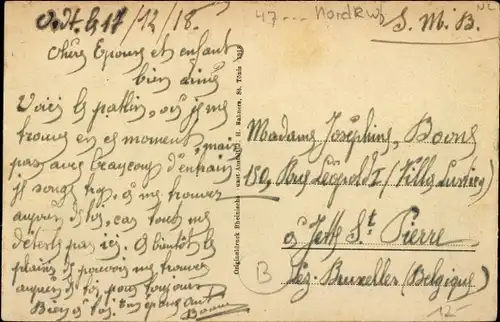 17/12/18.
47 --- Nordkw
S. M. B.
Chère Epouse et enfant
bien aimés
Voici le patlin, où je me
trouve en ce moment, mais
pas avec beaucoup d'entrain
je songe trop à me trouver
auprès de toi, car tout me
déteste pas ici. A bientôt le
plaisir de pouvoir me trouver
auprès de toi pour toujours
Bien à toi. Ton époux
Originaldruck Rheinische H. Rahtern, St. Tönis
Madame Joséphine Boons
150, Rue Léopold I (Villa
à Jette St. Pierre
Lez-Bruxelles (Belgique)
B
12-